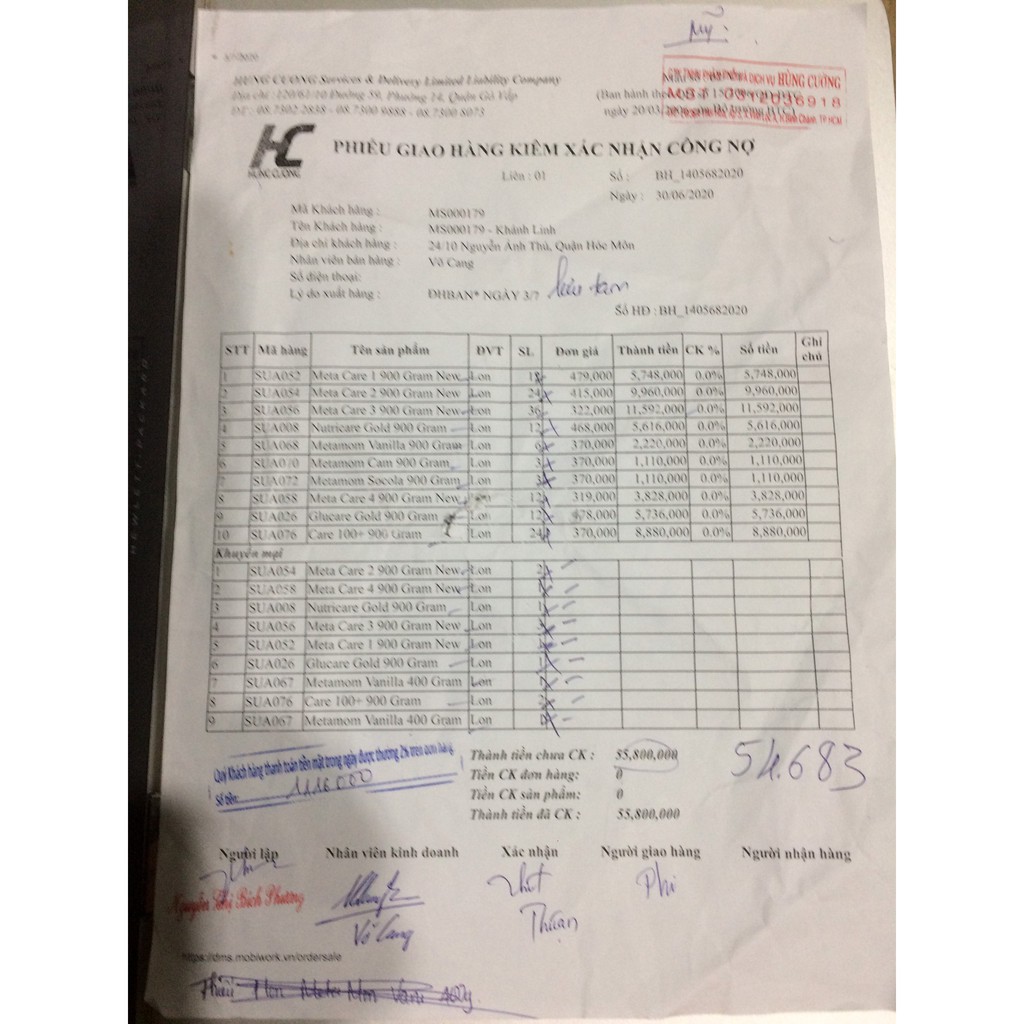 Mỹ:
HUNG CUONG Services & Delivery Limited Liability Company
Địa chỉ : 120/61/10 Đường 59, Phường 14, Quận Gò Vấp
ĐT : 08.7302 2838 - 08.7300 9888 - 08.7300 8073
(Ban hành
ngày 20/03
HÙNG CƯỜNG
HC
HÙNG CƯỜNG
PHIẾU GIAO HÀNG KIÊM XÁC NHẬN CÔNG NỢ
Liên : 01 Số : BH_1405682020
Ngày : 30/06/2020
Mã Khách hàng : MS000179
Tên Khách hàng : MS000179 - Khánh Linh
Địa chỉ khách hàng : 24/10 Nguyễn Ảnh Thủ, Quận Hóc Môn
Nhân viên bán hàng : Võ Cang
Số điện thoại:
Lý do xuất hàng : ĐHBAN* NGÀY 3/7
Số HĐ : BH_1405682020
STT Mã hàng Tên sản phẩm ĐVT SL Đơn giá Thành tiền CK % Số tiền Ghi chú
1 SUA052 Meta Care 1 900 Gram New Lon 479,000 5,748,000 0.0% 5,748,000
2 SUA054 Meta Care 2 900 Gram New Lon 24 415,000 9,960,000 0.0% 9,960,000
3 SUA056 Meta Care 3 900 Gram New Lon 36 322,000 11,592,000 0.0% 11,592,000
4 SUA008 Nutricare Gold 900 Gram Lon 12 468,000 5,616,000 0.0% 5,616,000
5 SUA068 Metamom Vanilla 900 Gram Lon 6 370,000 2,220,000 0.0% 2,220,000
6 SUA070 Metamom Cam 900 Gram Lon 3 370,000 1,110,000 0.0% 1,110,000
7 SUA072 Metamom Socola 900 Gram Lon 3 370,000 1,110,000 0.0% 1,110,000
8 SUA058 Meta Care 4 900 Gram New Lon 12 319,000 3,828,000 0.0% 3,828,000
9 SUA026 Glucare Gold 900 Gram Lon 12 478,000 5,736,000 0.0% 5,736,000
10 SUA076 Care 100+ 900 Gram Lon 24 370,000 8,880,000 0.0% 8,880,000
Khuyến mại
1 SUA054 Meta Care 2 900 Gram New Lon 2
2 SUA058 Meta Care 4 900 Gram New Lon
3 SUA008 Nutricare Gold 900 Gram Lon
4 SUA056 Meta Care 3 900 Gram New Lon
5 SUA052 Meta Care 1 900 Gram New Lon
6 SUA026 Glucare Gold 900 Gram Lon
7 SUA067 Metamom Vanilla 400 Gram Lon
8 SUA076 Care 100+ 900 Gram Lon
9 SUA067 Metamom Vanilla 400 Gram Lon
Quý Khách hàng thanh toán tiền mặt trong ngày được thưởng 2% trên đơn hàng
Số tiền: 1116000
Thành tiền chưa CK : 55,800,000
54.683
Tiền CK đơn hàng: 0
Tiền CK sản phẩm: 0
Thành tiền đã CK : 55,800,000
Người lập Nhân viên kinh doanh Xác nhận Người giao hàng Người nhận hàng
Nguyễn Thị Bích Phương
Võ Cang
Thuận
Phi
https://dms.mobiwork.vn/ordersale